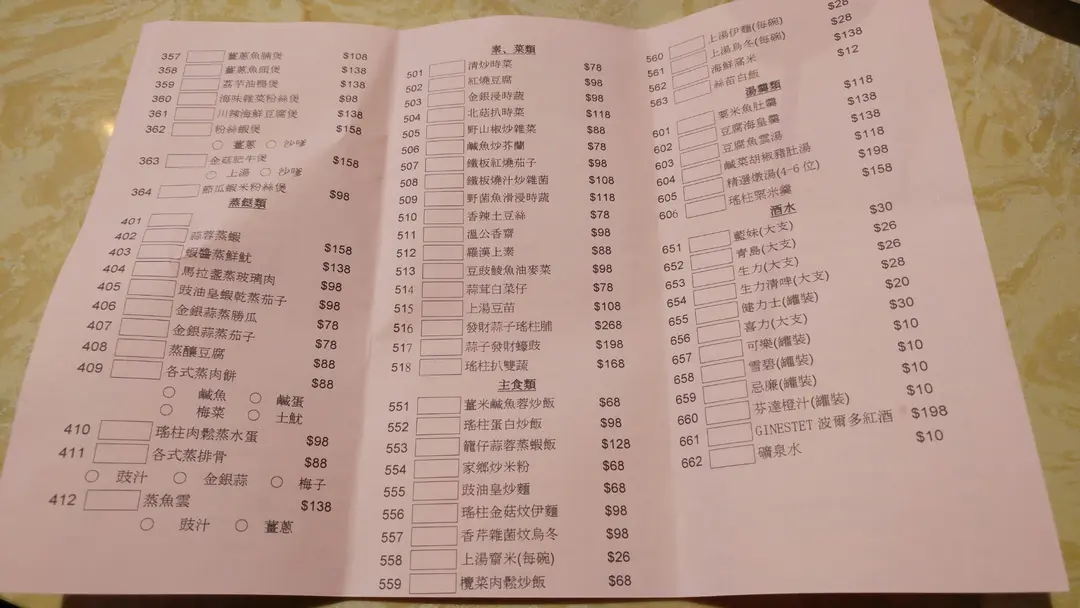 357 薑蔥魚腩煲 $108
358 薑蔥魚頭煲 $138
359 荔芋油鴨煲 $138
360 海味雜菜粉絲煲 $98
361 川辣海鮮豆腐煲 $138
362 粉絲蝦煲 $158
薑蔥 沙嗲
363 金菇肥牛煲 $158
上湯 沙嗲
364 節瓜蝦米粉絲煲 $98
蒸餸類
401
402 蒜蓉蒸蝦 $158
403 蝦醬蒸鮮魷 $138
404 馬拉盞蒸玻璃肉 $98
405 豉油皇蝦乾蒸茄子 $98
406 金銀蒜蒸勝瓜 $78
407 金銀蒜蒸茄子 $78
408 蒸釀豆腐 $88
409 各式蒸肉餅 $88
鹹魚 鹹蛋
梅菜 土魷
410 瑤柱肉鬆蒸水蛋 $98
411 各式蒸排骨 $88
豉汁 金銀蒜 梅子
412 蒸魚雲 $138
豉汁 薑蔥
齋、菜類
501 清炒時菜 $78
502 紅燒豆腐 $98
503 金銀浸時蔬 $98
504 北菇扒時菜 $118
505 野山椒炒雜菜 $88
506 鹹魚炒芥蘭 $78
507 鐵板紅燒茄子 $98
508 鐵板燒汁炒雜菌 $108
509 野菌魚滑浸時蔬 $118
510 香辣土豆絲 $78
511 溫公香齋 $98
512 羅漢上素 $88
513 豆豉鯪魚油麥菜 $98
514 蒜茸白菜仔 $78
515 上湯豆苗 $108
516 發財蒜子瑤柱脯 $268
517 蒜子發財蠔豉 $198
518 瑤柱扒雙蔬 $168
主食類
551 薑米鹹魚蓉炒飯 $68
552 瑤柱蛋白炒飯 $98
553 龍仔蒜蓉蒸蝦飯 $128
554 家鄉炒米粉 $68
555 豉油皇炒麵 $68
556 瑤柱金菇炆伊麵 $98
557 香芹雜菌炆烏冬 $98
558 上湯齋米(每碗) $26
559 欖菜肉鬆炒飯 $68
560 上湯伊麵(每碗) $28
561 上湯烏冬(每碗) $28
562 海鮮腐米 $138
563 絲苗白飯 $12
湯羹類
601 粟米魚肚羹 $118
602 豆腐海皇羹 $138
603 豆腐魚雲湯 $138
604 鹹菜胡椒豬肚湯 $118
605 精選燉湯(4-6位) $198
606 瑤柱粟米羹 $158
酒水
651 藍妹(大支) $30
652 青島(大支) $26
653 生力(大支) $26
654 生力清啤(大支) $28
655 健力士(罐裝) $20
656 喜力(大支) $30
657 可樂(罐裝) $10
658 雪碧(罐裝) $10
659 忌廉(罐裝) $10
660 芬達橙汁(罐裝) $10
661 GINESTET 波爾多紅酒 $198
662 礦泉水 $10